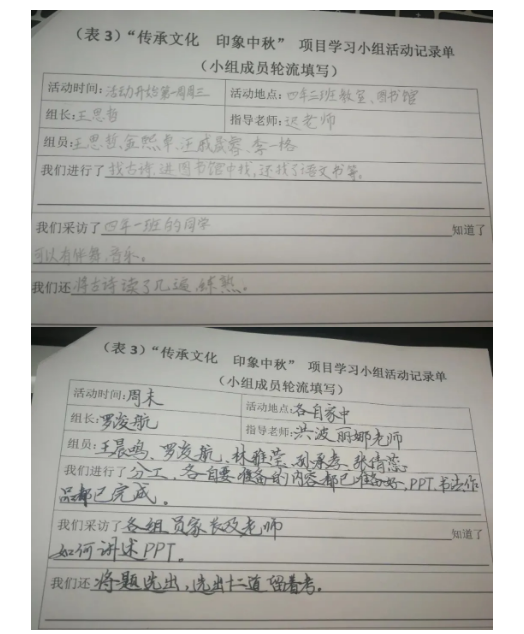 （表3）“传承文化 印象中秋” 项目学习小组活动记录单
（小组成员轮流填写）
活动时间:活动开始第一周周三 活动地点:四年三班教室、图书馆
组长:王思哲 指导老师:迟老师
组员:王思哲、李一格
我们进行了找古诗,进图书馆中找,还找了语文书等。
我们采访了四年一班的同学 知道了
可以有伴舞、音乐。
我们还将古诗读了几遍 练熟。
（表3）“传承文化 印象中秋” 项目学习小组活动记录单
（小组成员轮流填写）
活动时间:周末 活动地点:各自家中
组长:罗浚航 指导老师:洪波 丽娜老师
组员:王晨鸣、罗浚航、林雅莹、张倩蕊
我们进行了分工、各自要准备的内容都已准备好、PPT、书法作
品都已完成。
我们采访了各组员家长及老师 知道了
如何讲述PPT。
我们还将题选出,选出十二道留着考。